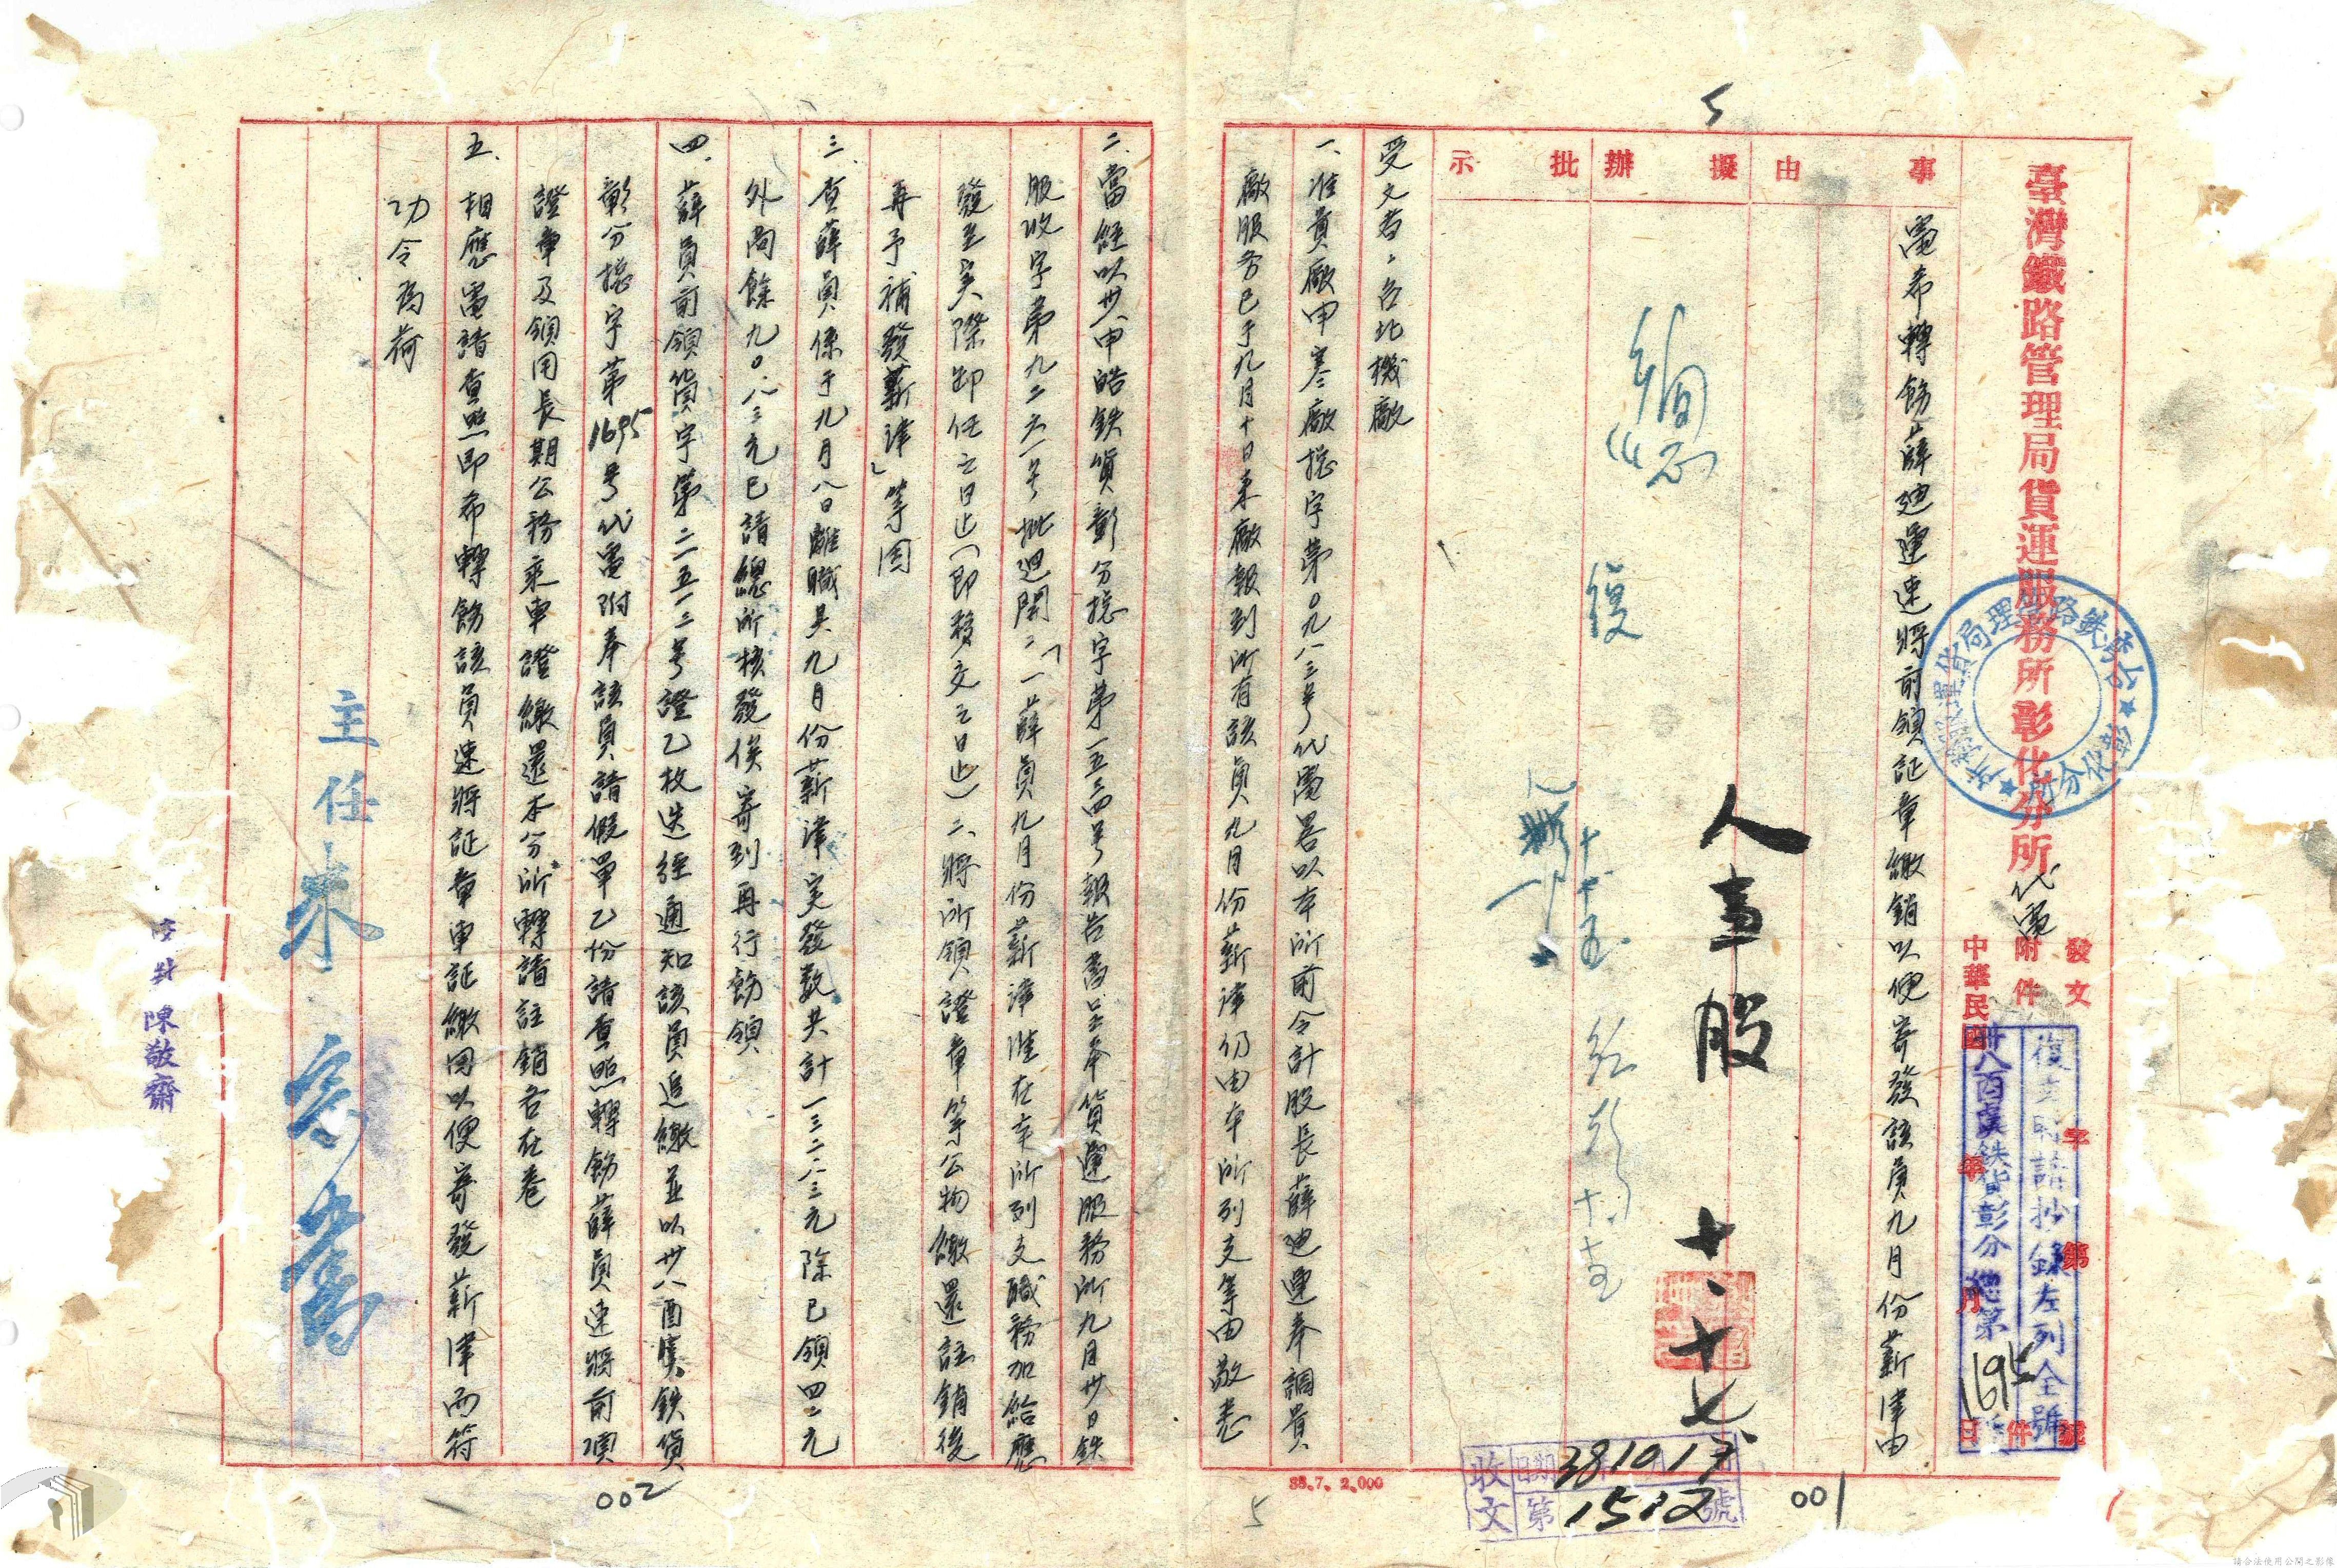 5
臺灣鐵路管理局貨運服務所彰化分所
代電
發文
字
第
號
附件
件
中華民國
年
月
日
復文時請抄錄左列全號
卅八酉寘鉄貨彰分總第
1695
台湾鉄路管理局貨運服務所
彰化分所
事
由
電希轉飭薛迪運速將前領証章繳銷以便寄發該員九月份薪津由
擬
辦
批
示
人事股
十、十七
復
受文者：台北機廠
一、准貴廠申寒廠總字第0九八三号代電畧以本所前会計股長薛迪運奉調貴
廠服务已于九月十日來廠報到所有該員九月份薪津仍由本所列支等由敬悉
二、當經以卅八申皓鉄貨彰分總字第一五三四号報告書呈奉貨運服務所九月卅日鉄
服收字第九二六一号批迴開：「一、薛員九月份薪津准在本所列支職務加給應
發至実際卸任之日止（即移交之日止）二、將所領證章等公物繳還註銷後
再予補發薪津」等因
三、查薛員係于九月八日離職其九月份薪津実發数共計一三二.八三元除已領四二元
外尚餘九0.八三元已請總所核發俟寄到再行飭領
四、薛員前領貨字第二二五一三号證乙枚迭經通知該員追繳並以卅八酉寘鉄貨
彰分總字第1695号代電附奉該員請假單乙份請查照轉飭薛員速將前項
證章及領用長期公務乘車證繳還本分所轉請註銷各在卷
五、相應電請查照即希轉飭該員速將証章車証繳回以便寄發薪津而符
功令為荷
主任
校對 陳敬齋
收文
日期
381017
第
1512
號
38.7. 2,000
001
002
5
請合法使用公開之影像